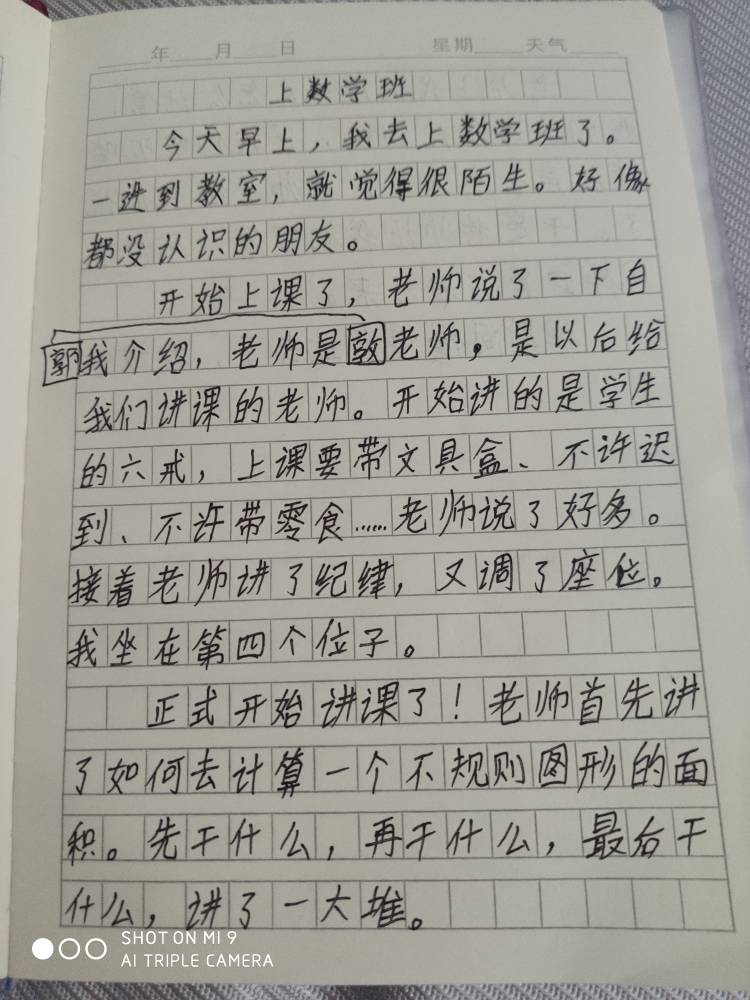 年 月 日 星期 天气
上数学班
今天早上，我去上数学班了。
一进到教室，就觉得很陌生。好像
都没认识的朋友。
开始上课了，老师说了一下自
郭我介绍，老师是敦老师，是以后给
我们讲课的老师。开始讲的是学生
的六戒，上课要带文具盒、不许迟
到、不许带零食……老师说了好多。
接着老师讲了纪律，又调了座位。
我坐在第四个位子。
正式开始讲课了！老师首先讲
了如何去计算一个不规则图形的面
积。先干什么，再干什么，最后干
什么，讲了一大堆。
SHOT ON MI 9
AI TRIPLE CAMERA